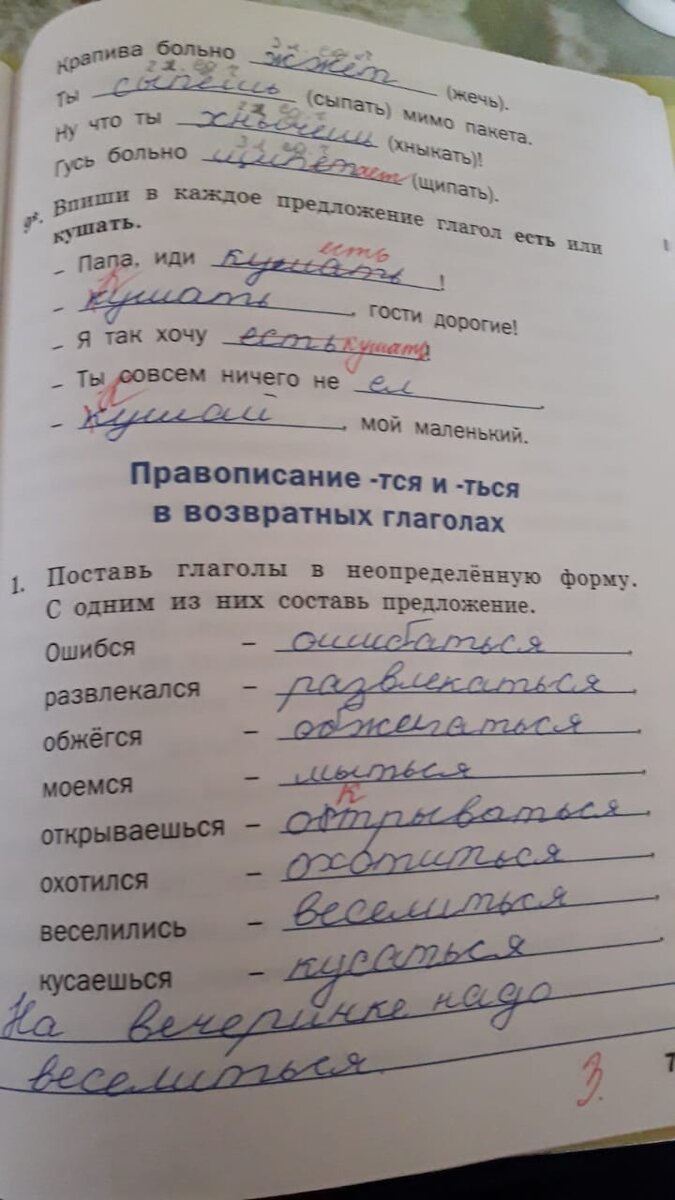 3 л. ед. ч
Крапива больно жжёт (жечь).
2 л. ед. ч
Ты сыпешь (сыпать) мимо пакета.
2 л. ед. ч
Ну что ты хнычешь (хныкать)!
3 л. ед. ч
Гусь больно щипетает (щипать).
9*. Впиши в каждое предложение глагол есть или
кушать.
есть
– Папа, иди кушать !
– Кушать , гости дорогие!
– Я так хочу есть кушать!
– Ты совсем ничего не ел .
– кушай , мой маленький.
Правописание -тся и -ться
в возвратных глаголах
1. Поставь глаголы в неопределённую форму.
С одним из них составь предложение.
Ошибся – ошибаться .
развлекался – развлекаться .
обжёгся – обжегаться .
моемся – мыться .
к
открываешься – отрываться .
охотился – охотиться .
веселились – веселиться .
кусаешься – кусаться .
На вечеринке надо
веселиться.
3.
7